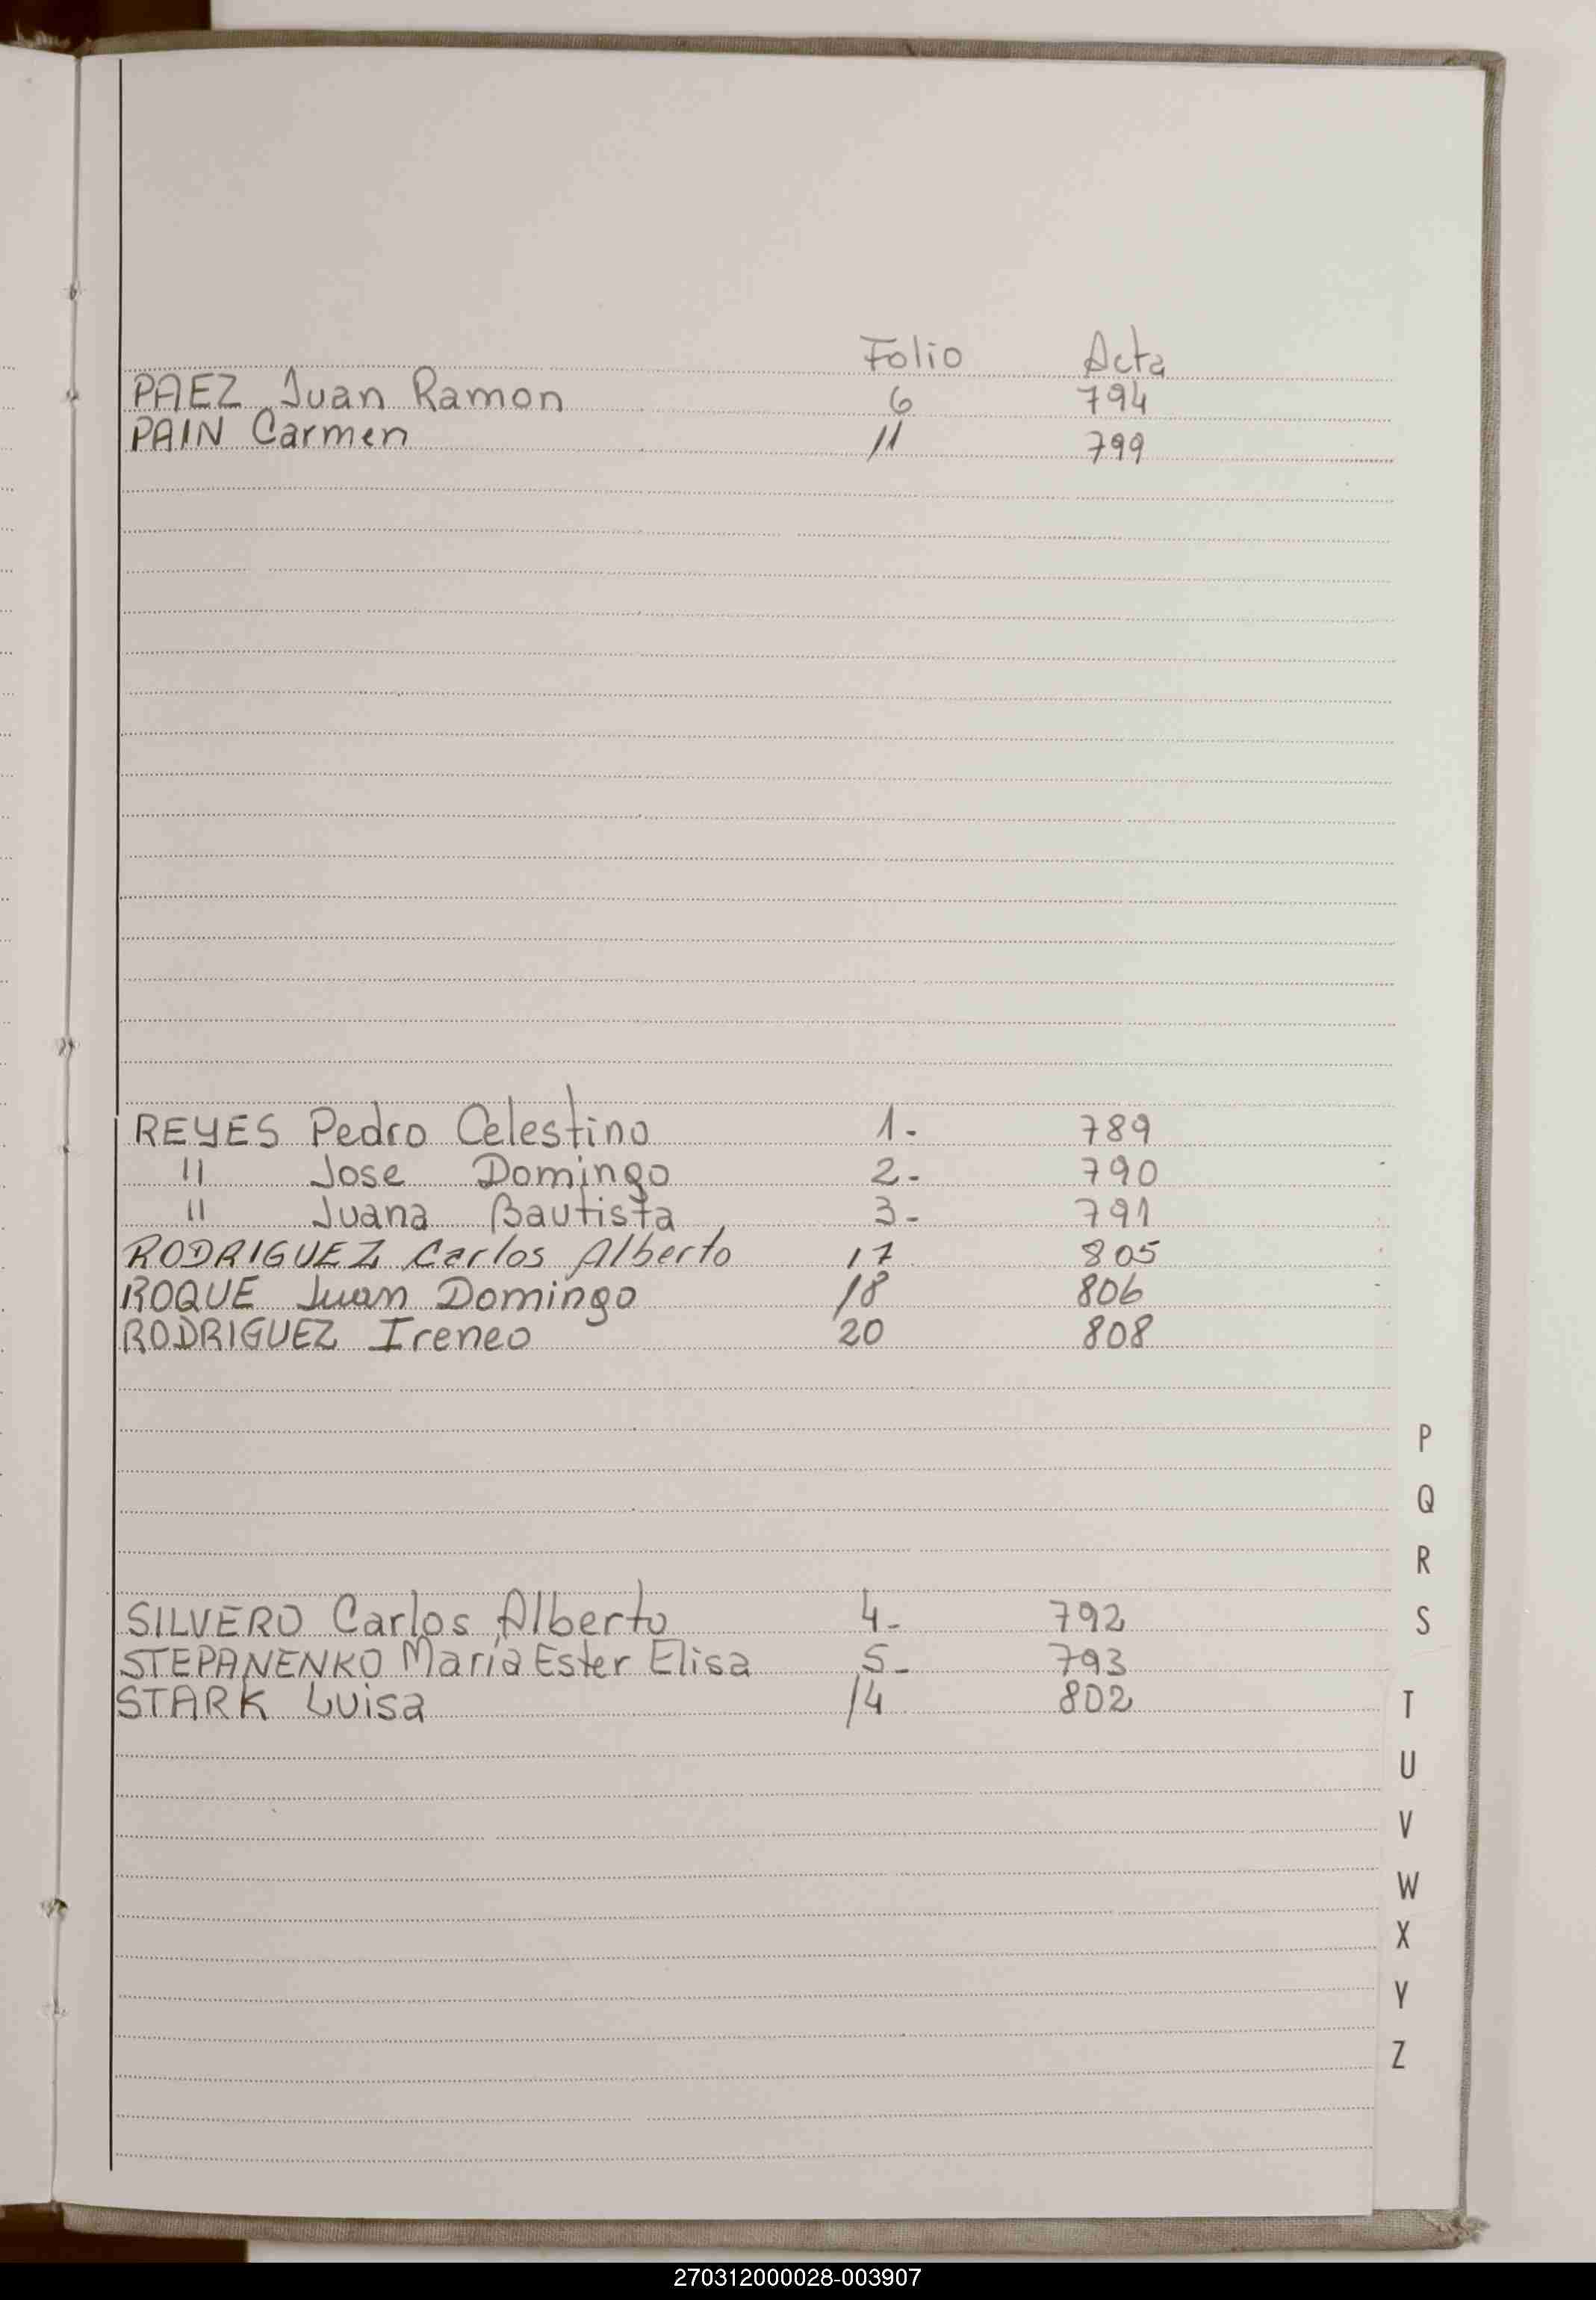 Folio Acta
PAEZ Juan Ramon 6 794
PAIN Carmen 11 799
REYES Pedro Celestino 1- 789
" Jose Domingo 2- 790
" Juana Bautista 3- 791
RODRIGUEZ Carlos Alberto 17 805
ROQUE Juan Domingo 18 806
RODRIGUEZ Ireneo 20 808
P
Q
R
SILVERO Carlos Alberto 4- 792
S
STEPANENKO María Ester Elisa 5- 793
STARK Luisa 14 802
T
U
V
W
X
Y
Z
270312000028-003907